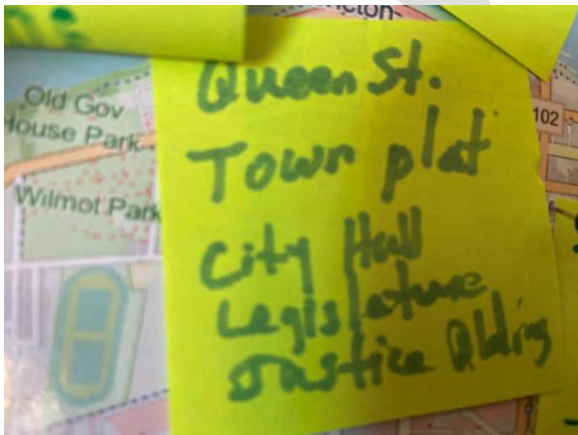 Old Gov
House Park
Wilmot Park
102
Queen St.
Town plat
City Hall
Legislature
Justice Blding